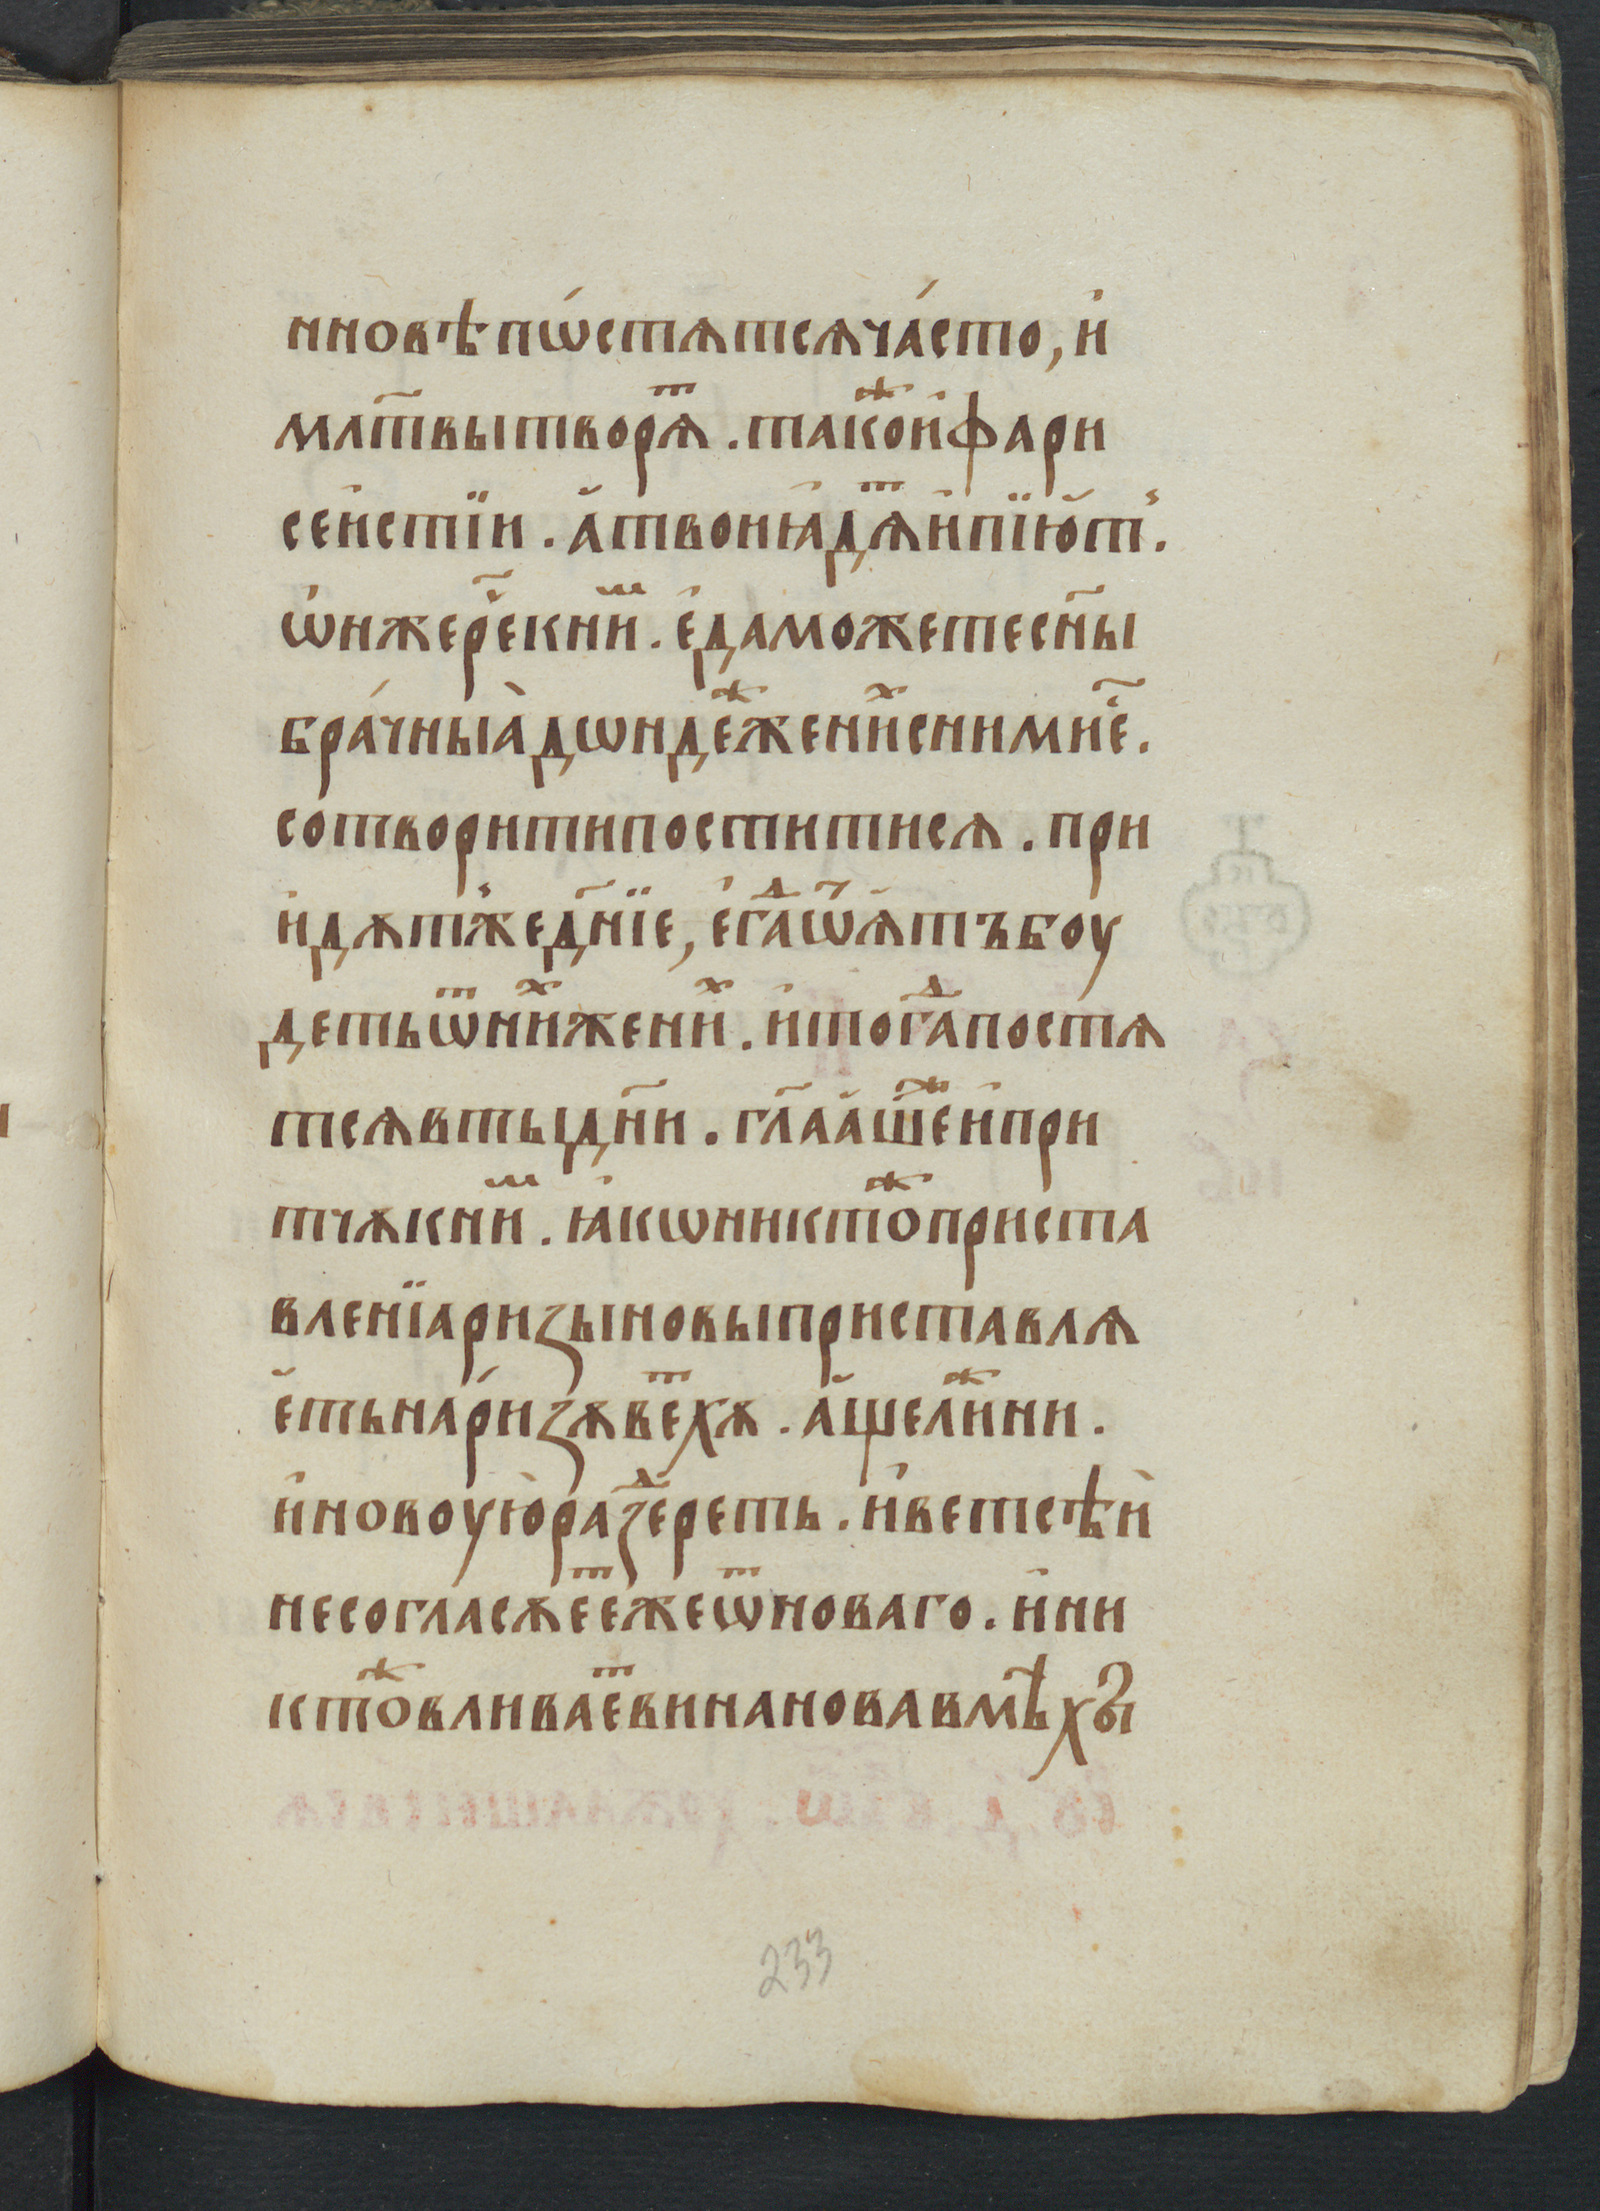 нновѣ пѡ́стѧтсѧ ча́сто, и҆
мл҃твы творѧⷮ. такоⷤ и҆ фари
сеи҆стїи. а҆ твои ꙗ҆дѧⷮ и҆ пїю҆т꙽.
ѡ҆н же рⷱ҇е к ниⷨ. є҆да можете сн҃ы
бра́чныѧ̀ дѡндеⷤ жениⷯ с ними є҆ⷭ҇.
сотворити поститисѧ. при
и҆дѧт꙽ же дн҃їе, є҆гⷣа ѿꙗ҆тъ боу
деть ѿ ниⷯ жениⷯ. и҆ тогⷣа постѧ
тсѧ в ты дн҃и. гл҃аашеⷤ и҆ при
тчѧ к ниⷨ. ꙗ҆кѡ никтоⷤ приста
вленїа ризы новы приставлѧ
є҆ть на ри́зѧ веⷮхѧ. а҆ще лиⷤ ни.
и҆ новоую̀ раздереть. и҆ ветсѣй
не согласѧеⷮ еже ѿ новаго. и҆ ни
ктоⷤ вливаеⷮ вина нова в мѣхы
233